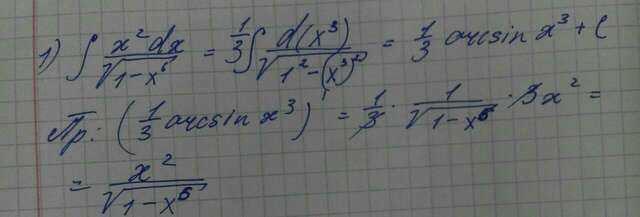 1) ∫ x² dx / √(1-x⁶) = 1/3 ∫ d(x³) / √(1²-(x³)²) = 1/3 arcsin x³ + C
Пр: (1/3 arcsin x³)' = 1/3 · 1/√(1-x⁶) · 3x² =
= x² / √(1-x⁶)